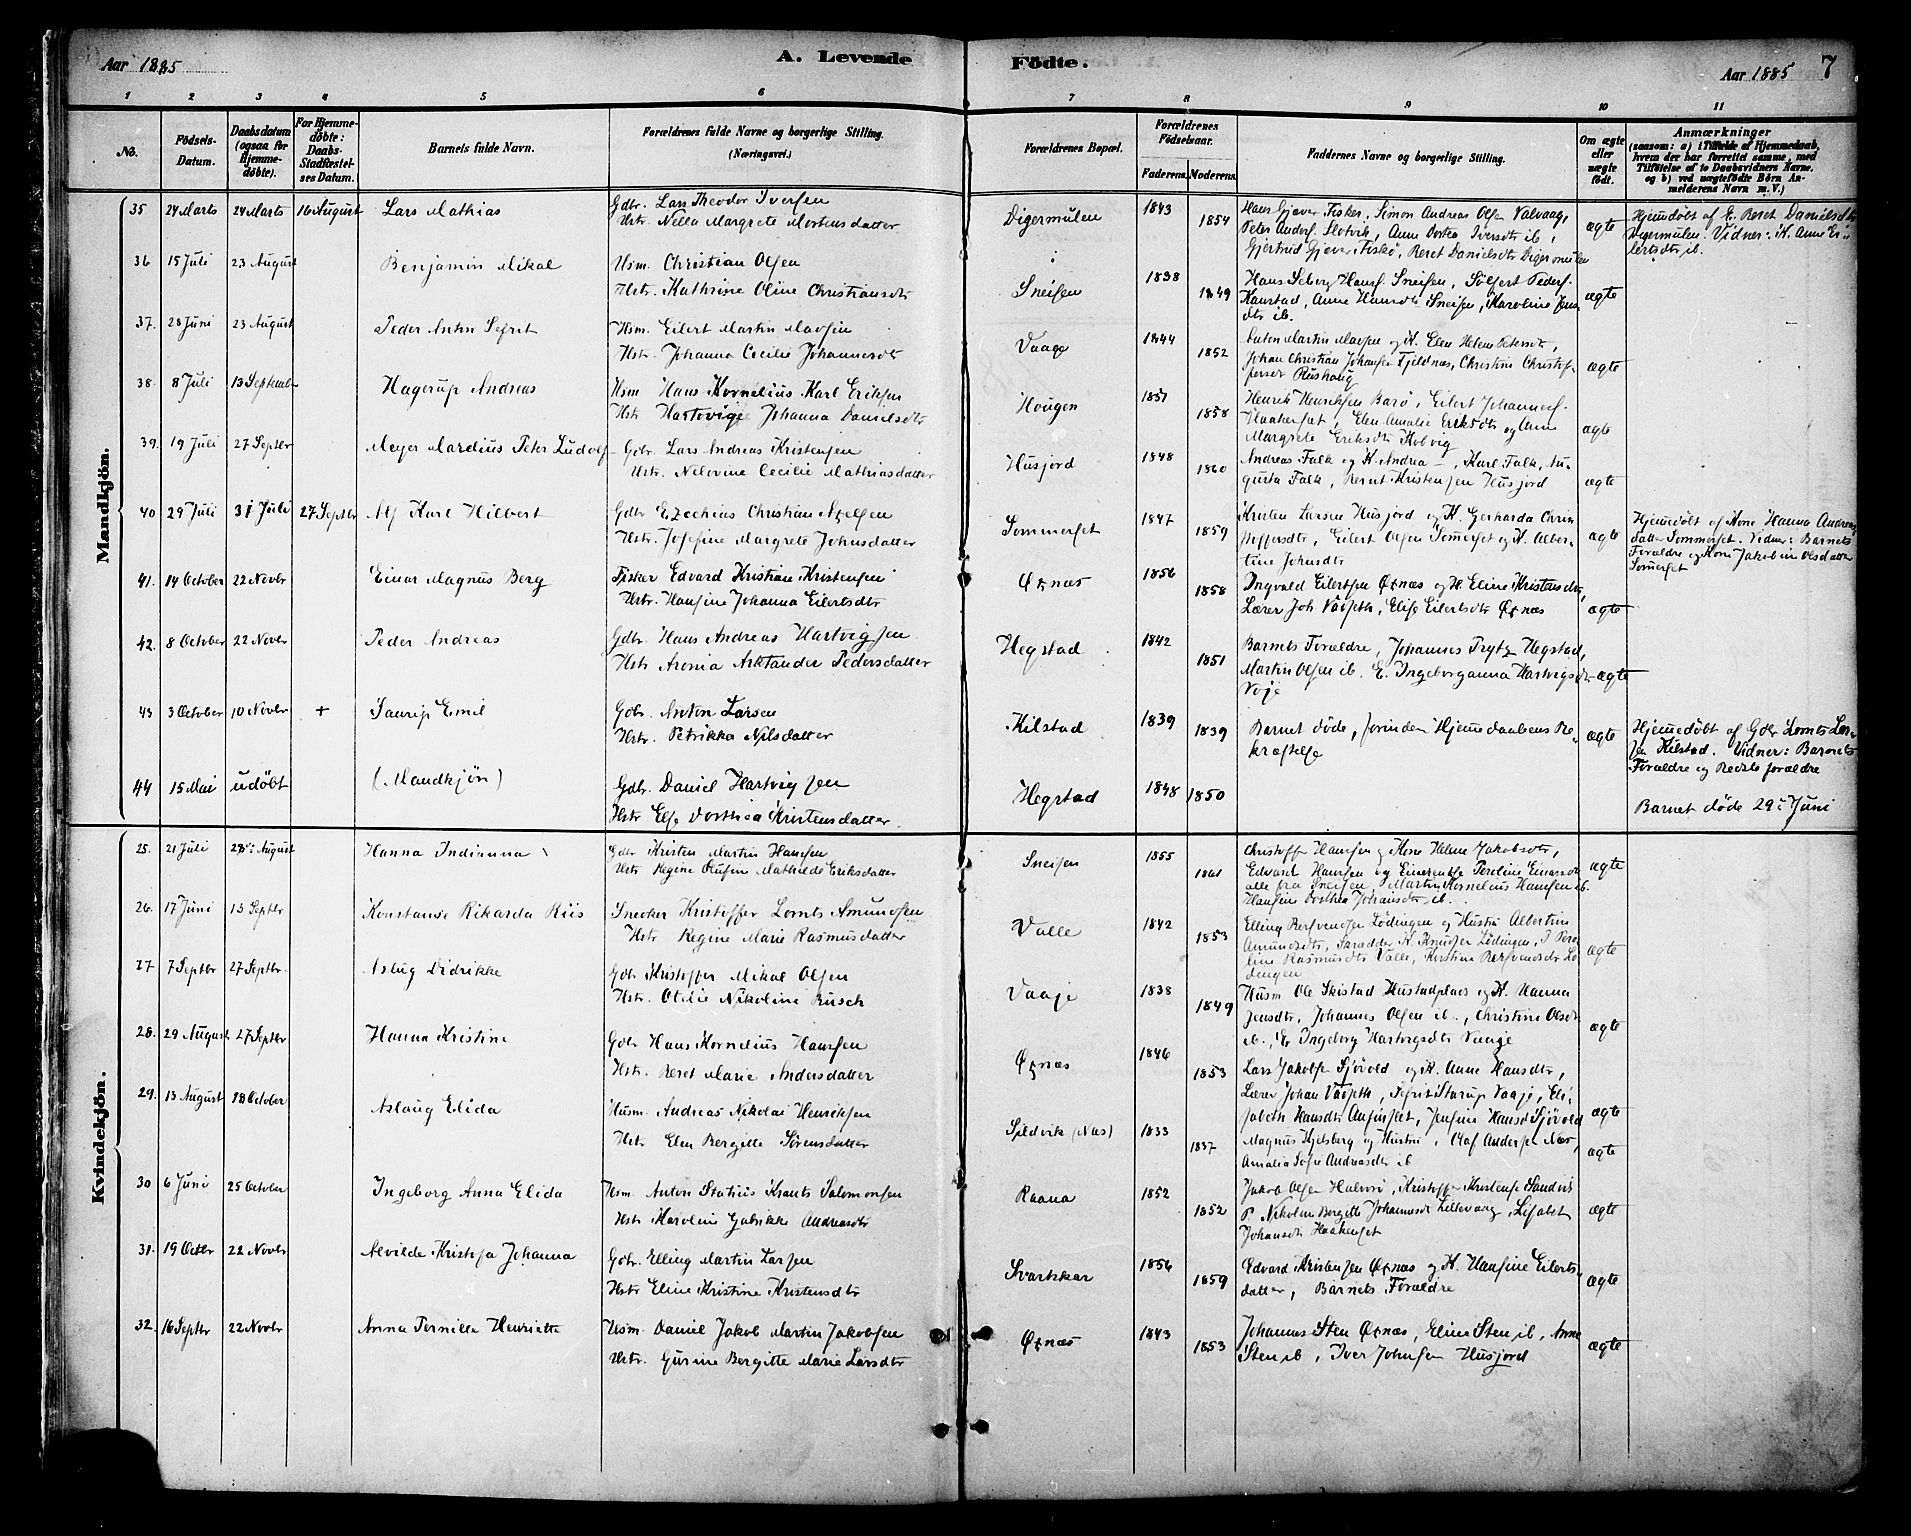 Aar 1885
A. Levende
Födte.
Aar 1885
7
1 2 3 4 5 6 7 8 9 10 11
No.
Födsels-Datum.
Daabsdatum (ogsaa for Hjemme-døbte).
For Hjemme-døbte: Daabs-Stadfæstel-ses Datum.
Barnets fulde Navn.
Forældrenes fulde Navne og borgerlige Stilling.
(Næringsvei.)
Forældrenes Bopæl.
Forældrenes Födselsaar.
Faderens. Moderens.
Faddernes Navne og borgerlige Stilling.
Om ægte eller uægte födt.
Anmærkninger
(saasom: a) i Tilfælde af Hjemmedaab, hvem der har forrettet samme, med Tilföielse af to Daabsvidners Navne, og b) ved uægtefödte Börn An-melderens Navn m. V.)
Mandkjön.
35 24 Marts 24 Marts 16 August Lars Mathias
Gdbr. Lars Theodor Iversen
Hstr. Nella Margrete Mortensdatter
Digermulen 1843 1854
Hans Gjæver Fisker, Simon Andreas Olsen Valvaag,
Peter Anders. Slotvik, Anne Dortea Iversdtr ib,
Gjertrud Gjæver Fiskø, Beret Danielsdtr Digermulen
ægte
Hjemdøbt af E. Beret Danielsdtr
Digermulen. Vidner: K. Anne Ei-
lertsdtr ib.
36 15 Juli 23 August Benjamin Mikal
Hsm. Christian Olsen
Hstr. Kathrine Oline Christiansdtr
Sneisen 1838 1849
Hans Seberg Hans. Sneisen, Sölfert Peders.
Kanstad, Anne Hansdtr Sneisen, Maroline Jens
dtr ib.
ægte
37. 28 Juni 23 August Peder Anton Sefrit
Hsm. Eilert Martin Mavsen
Hstr. Johanna Cecilie Johannesdtr
Vaage 1844 1852
Anton Martin Mavsen og K. Elen Helene Petersdtr,
Johan Christian Johansen Fjeldnæs, Christine Christof
fersdtr Rushaug
ægte
38. 8 Juli 13 September Hagerup Andreas
Hsm Hans Kornelius Karl Eriksen
Hstr Hartvige Johanna Danielsdtr
Hougen 1857 1858
Henrik Henriksen Barø, Eilert Johannes.
Haakerset, Elen Amalie Eriksdtr og Anne
Margrete Eriksdtr Kolvig
ægte
39. 19 Juli 27 Septbr Meyer Mardius Peter Ludolf
Gdbr. Lars Andreas Kristensen
Hstr. Nelovine Cecilie Mathiasdatter
Husjord 1848 1860
Andreas Falk og K. Andrea —, Karl Falk, Au-
gusta Falk, Bernt Kristensen Husjord
ægte
40 29 Juli 31 Juli 27 Septbr Alf Karl Hilbert
Gdbr Ezechias Christian Axelsen
Hstr. Josefine Margrete Johnsdatter
Sommerset 1847 1859
Kristen Larsen Husjord og K. Gerharda Chris
tooffersdtr, Eilert Olsen Somerset og K. Alber-
tine Johnsdtr
ægte
Hjemedøbt af Kone Hanna Andreas
datter Sommerset. Vidner: Barnets
Forældre og Kone Jakobine Olsdatter
Somerset
41. 14 October 22 Novbr Einar Magnus Berg
Fisker Edvard Kristian Kristensen
Hstr. Hansine Johanna Eilertsdtr
Øxnæs 1856 1858
Ingvald Eilertsen Øxnæs og H. Eline Kristensdtr,
Lærer Joh. Vaaseth, Elise Eilertsdtr Øxnæs
ægte
42. 8 October 22 Novbr Peder Andreas
Gdbr. Hans Andreas Hartvigsen
Hstr Aronia Arktander Pedersdatter
Hegstad 1842 1851
Barnets Forældre, Johannes Prytz Hegstad,
Martin Olsen ib. E. Ingeborganna Hartvigsdtr
Vaje
ægte
43 3 October 10 Novbr + Saurip Emil
Gdbr. Anton Larsen
Hstr. Petrikka Nilsdatter
Kilstad 1839 1839
Barnet døde, forinden Hjemedaabens Be-
kræftelse
ægte
Hjemedøbt af Gdbr Lornts Lar-
sen Kilstad. Vidner: Barnets
Forældre og Bedsteforældre
44 15 Mai udöbt (Mandkjön)
Gdbr. Daniel Hartvigsen
Hstr Else Dorthea Kristensdatter
Hegstad 1848 1850
Barnet döde 29. Juni
Kvindekjön.
25. 21 Juli 23. August Hanna Indianna
Gdbr Kristen Martin Hansen
Hstr Regine Olufine Mathilde Eriksdatter
Sneisen 1855 1861
Christoffer Hansen og Kone Helene Jakobsdtr,
Edvard Hansen og Einerenkje Peroline Einarsdtr
alle fra Sneisen, Martin Kornelius Hansen ib.
Hansine Dorthea Johansdtr ib.
ægte
26. 17 Juni 13 Septbr Konstanse Rikarda Riis
Snedker Kristoffer Lornts Amundsen
Hstr Regine Marie Rasmusdatter
Valle 1842 1853
Elling Bersvendsen Lödingen og Hustru Albertine
Amundsdtr, Skrædder K. Knudsen Lödingen, P. Pero
line Rasmusdtr Valle, Kirstine Bersvensdtr Lö
dingen
ægte
27. 7 Septbr 27 Septbr. Aslug Didrikke
Gdbr Kristoffer Mikal Olsen
Hstr. Otilie Nikoline Busch
Vaaje 1838 1849
Husm Ole Skistad Hustadplads og K. Hanna
Jensdtr, Johannes Olsen ib., Christine Olsdtr
ib., E. Ingeborg Hartvigsdtr Vaaje
ægte
28. 29 August 27 Septbr Hanna Kristine
Gdbr Hans Kornelius Hansen
Hstr. Beret Marie Andersdatter
Øxnæs 1846 1853
Lars Jakobs. Sjövold og K. Anne Hansdtr,
Lærer Johan Vaaseth, Sefrit Starup Vaaje, Eli-
sabeth Hansdtr Ansinset, Jensine Hansd Sjövold
ægte
29. 13 August 18 October Aslaug Elida
Husm. Andreas Nikolai Henriksen
Hstr. Elen Bergitte Sörensdatter
Sildvik (Næs) 1833 1837
Magnus Kjelsberg og Hustru, Olaf Anders. Næs,
Amalia Sofie Andreasdtr ib
ægte
30 6 Juni 25 October Ingeborg Anna Elida
Hsm. Anton Statius Krants Salomonsen
Hstr. Karoline Gabrikke Andreasdtr
Raana 1852 1852
Jakob Olsen Halvsö, Kristoffer Kristens. Sandvik
P. Nikoline Bergitte Johannesdtr Lillevaag, Lisabet
Johansdtr Haakerset
ægte
31. 19 Octbr 22 Novbr Alvilde Kristofa Johanna
Gdbr. Elling Martin Larsen
Hstr Eline Kristine Kristensdtr
Svartskar 1856 1859
Edvard Kristensen Øxnæs og K. Hansine Eilerts-
datter, Barnets Forældre
ægte
32. 16 Septbr 22 Novbr Anna Pernilla Henriette
Hsm. Daniel Jakob Martin Jakobsen
Hstr. Gurine Bergitte Marie Larsdtr
Øxnæs 1843 1853
Johannes Sten Øxnæs, Eline Sten ib, Anne
Sten ib, Iver Johnsen Husjord
ægte